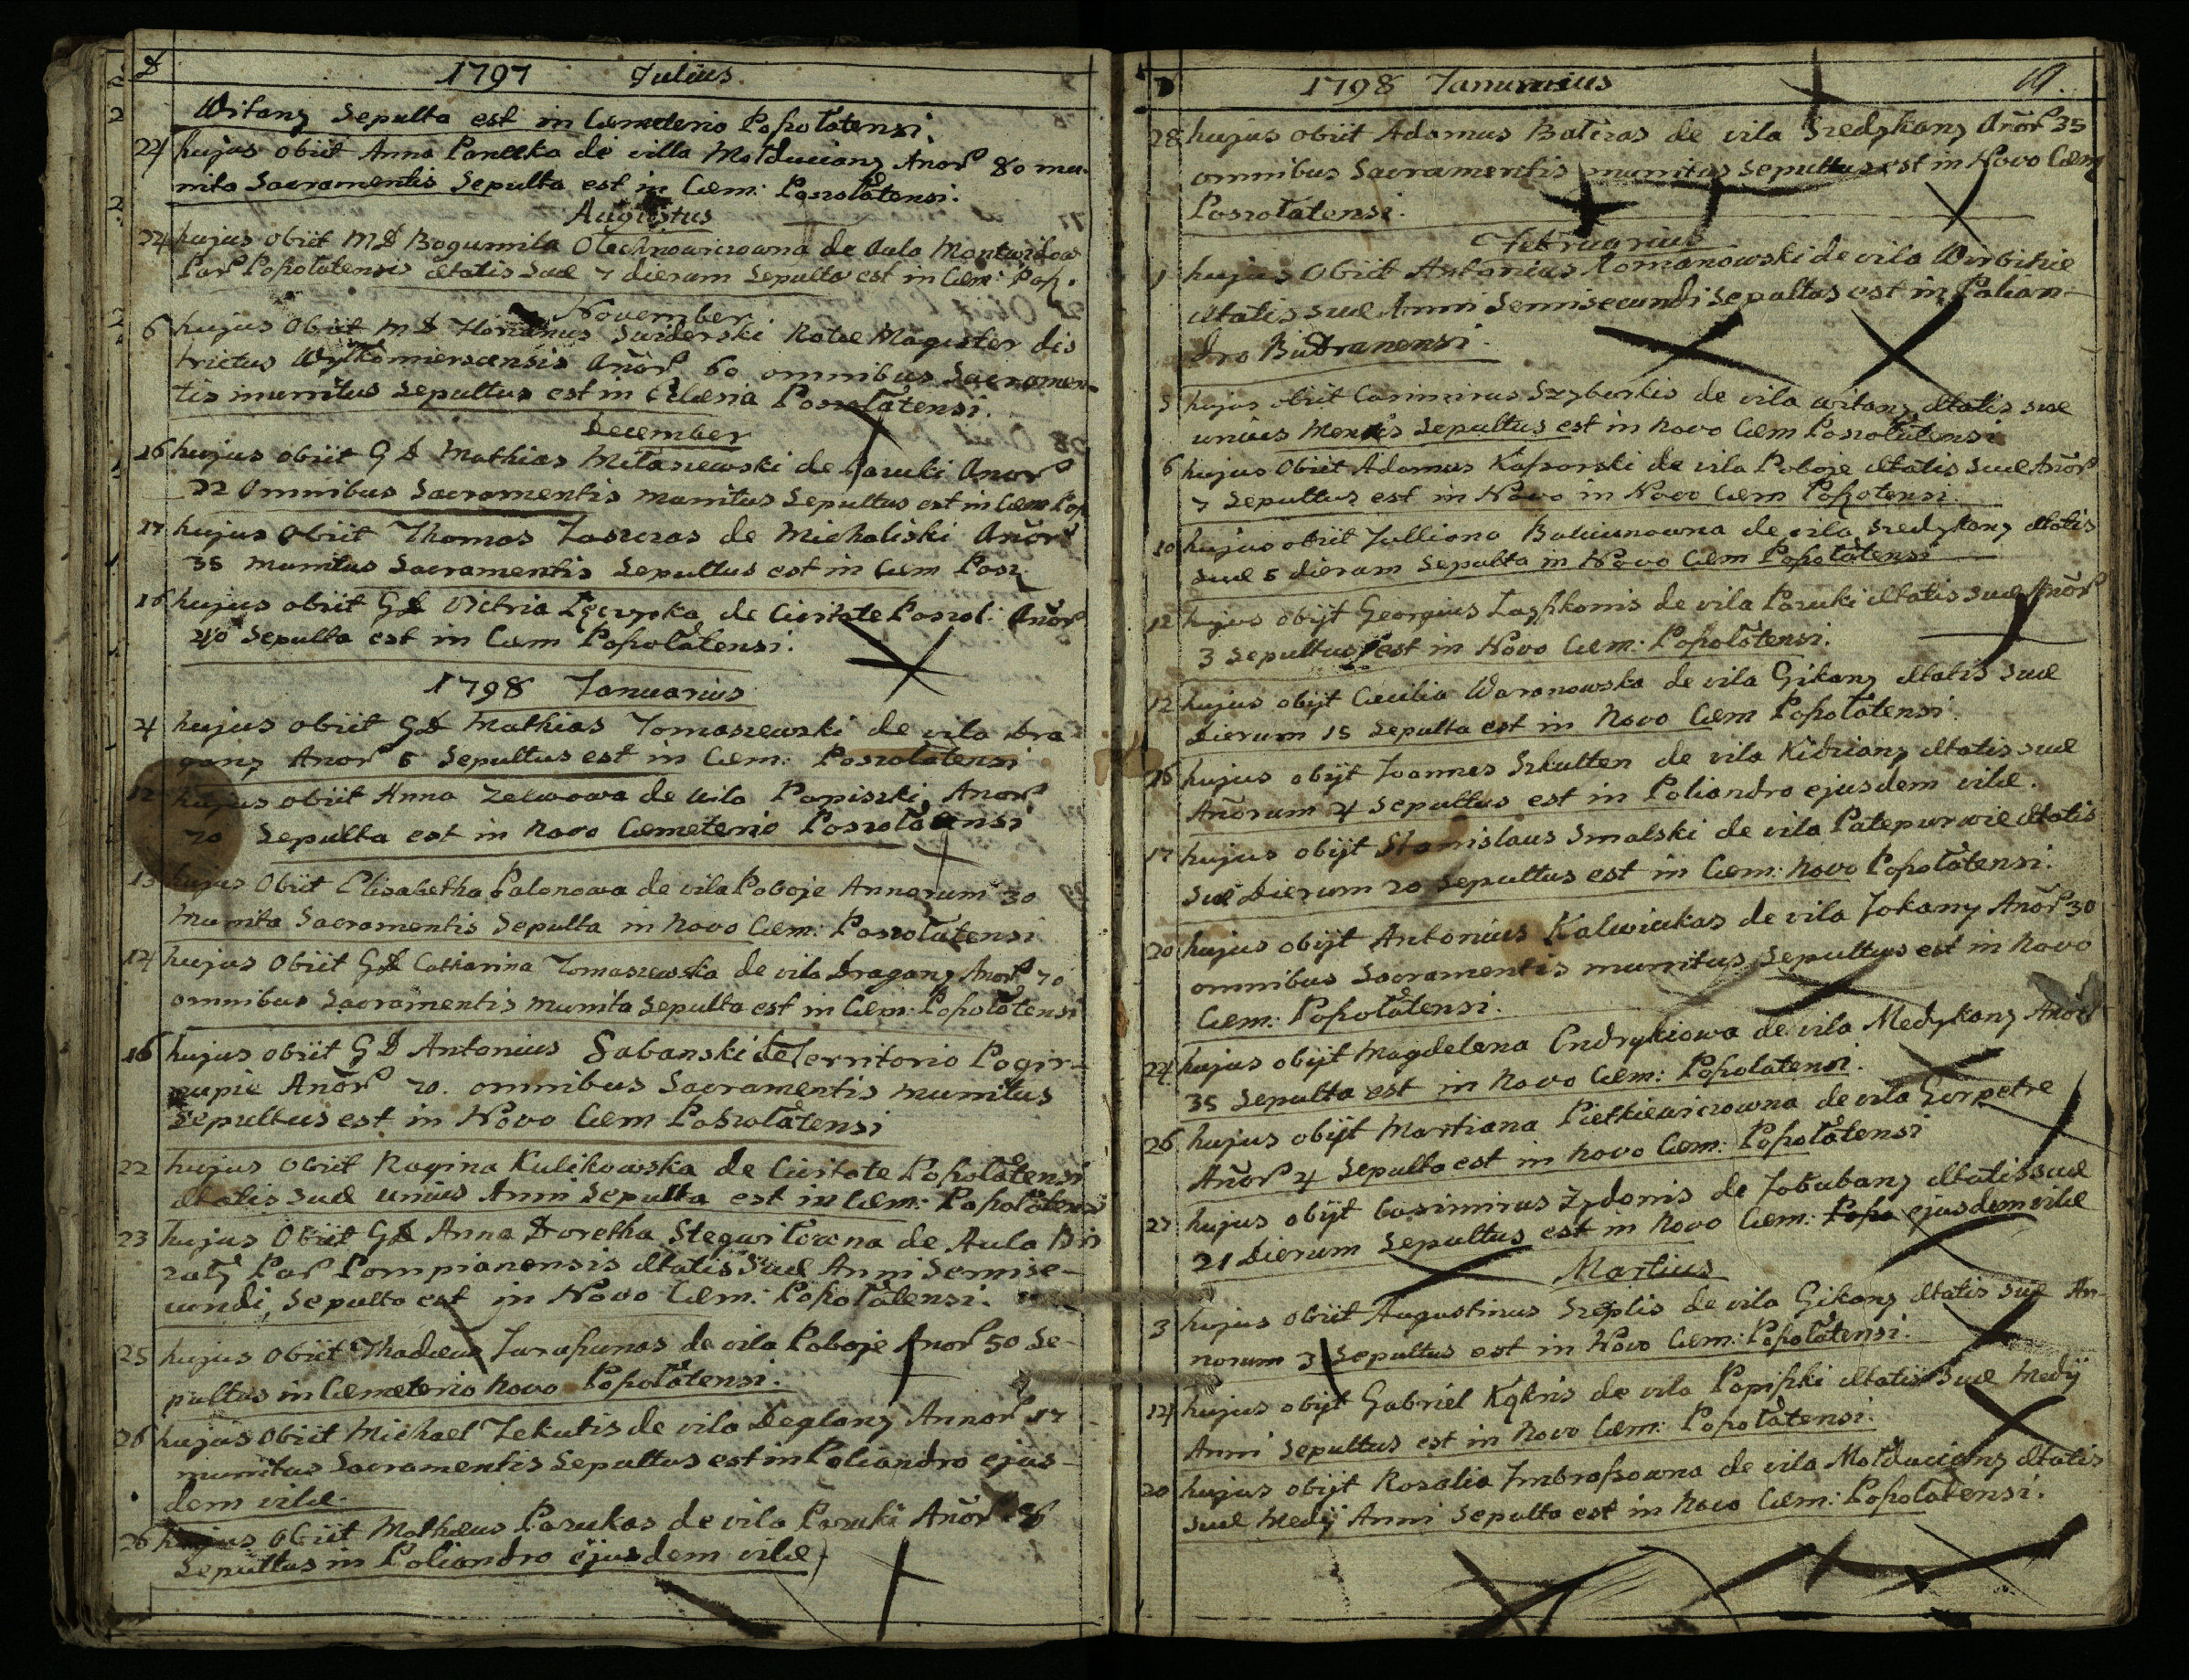 D 1797 Julius
Witany Sepulta est in Cæmeterio Poszolatensi.
24 hujus obiit Anna de villa Molduciany Anor 80 mu-
nita Sacramentis Sepulta est in Cæm: Poszolatensi.
Augustus
24 hujus Obiit MD Bogumila Olechnowiczowna de Aula
Par Poszolatensis ætatis suæ 7 dierum Sepulta est in Cæm: Posz.
November
6 hujus Obiit MD Swiderski Rotæ Magister dis
trictus Wylkomiersensis Anor 60 omnibus Sacramen-
tis munitus Sepultus est in Poszolatensi.
December
16 hujus obiit GD Mathias Milaszewski de Paruki Anor
22 Omnibus Sacramentis munitus Sepultus est in Cæm Posz
17 hujus Obiit Thomas de Michaliski Anor
35 munitus Sacramentis Sepultus est in Cæm Posz
18 hujus obiit GD de Civitate Poszol: Anor
40 Sepulta est in Cæm Poszolatensi.
1798 Januarius
4 hujus obiit GD Mathias Tomaszewski de vila Dra
gany Anor 5 Sepultus est in Cæm: Poszolatensi
12 hujus obiit Anna Zelwowa de vila Papiszki Anor
70 Sepulta est in novo Cæmeterio Poszolatensi
13 hujus Obiit Elisabetha Palonowa de vila Poboje Annorum 30
munita Sacramentis Sepulta in novo Cæm: Poszolatensi
14 hujus Obiit GD Catharina Tomaszewska de vila Dragany Anor 70
omnibus Sacramentis munita Sepulta est in Cæm: Poszolatensi
16 hujus obiit GD Antonius Sabanski de Territorio Pogir-
Anor 70. omnibus Sacramentis munitus
Sepultus est in Novo Cæm Poszolatensi
22 hujus obiit Ragina Kulikowska de Civitate Poszolatensi
ætatis suæ unius Anni Sepulta est in Cæm: Poszolatensi
23 hujus Obiit GD Anna Dorotha de Aula
Par Pompianensis ætatis Suæ Anni Semise-
cundi, Sepulta est in Novo Cæm: Poszolatensi.
25 hujus Obiit Thadæus de vila Poboje Anor 50 Se-
pultus in Cæmeterio novo Poszolatensi.
26 hujus Obiit Michael Jekutis de vila Deglany Annor 17
munitus Sacramentis Sepultus est in Poliandro ejus-
dem vilæ.
26 hujus Obiit Mathæus Parukas de vila Paruki Anor 86
Sepultus in Poliandro ejusdem vilæ.
D 1798 Januarius 19.
28 hujus obiit Adamus de vila Szedykany Anor 35
omnibus Sacramentis munitus Sepultus est in Novo Cæm
Poszolatensi.
Februarius
1 hujus Obiit Antonius Romanowski de vila Wirbitie
ætatis suæ Anni Semisecundi Sepultus est in Polian-
dro
5 hujus obiit Casimirus Szyburkis de vila Witany ætatis suæ
unius Mensis Sepultus est in novo Cæm Poszolatensi
6 hujus Obiit Adamus de vila Poboje ætatis suæ Anor
7 Sepultus est in Novo in Novo Cæm Poszolatensi.
10 hujus obiit Julliana de vila Szedykany ætatis
suæ 5 dierum Sepulta in Novo Cæm Poszolatensi
12 hujus obijt Georgius de vila Paruki ætatis suæ Anor
3 Sepultus est in Novo Cæm: Poszolatensi.
12 hujus obijt Cecilia Waranowska de vila Gikany ætatis suæ
Dierum 15 Sepulta est in Novo Cæm Poszolatensi.
16 hujus obijt Joannes Szkulten de vila ætatis suæ
Anorum 4 Sepultus est in Poliandro ejusdem vilæ.
17 hujus obijt Stanislaus Smalski de vila ætatis
suæ Dierum 20 Sepultus est in Cæm: novo Poszolatensi.
20 hujus obijt Antonius Kalwiukas de vila Jokany Anor 30
omnibus Sacramentis munitus Sepultus est in novo
Cæm: Poszolatensi.
24 hujus obijt Magdelena Endrykiowa de vila Medykany Anor
35 Sepulta est in novo Cæm: Poszolatensi.
26 hujus obijt Martiana Pietkiewiczowna de vila Gorpetre
Anor 4 Sepulta est in novo Cæm: Poszolatensi
27 hujus obijt Casimirus Zydonis de ætatis suæ
21 Dierum Sepultus est in novo Cæm: ejusdem vilæ
Martius
3 hujus Obiit Augustinus Szeplis de vila Gikany ætatis suæ An-
norum 3 Sepultus est in Novo Cæm: Poszolatensi.
14 hujus obijt Gabriel de vila Papiszki ætatis Suæ Medij
Anni Sepultus est in novo Cæm: Poszolatensi.
20 hujus obijt Rosalia Imbraszowna de vila Molduciany ætatis
suæ Medij Anni Sepulta est in novo Cæm: Poszolatensi.